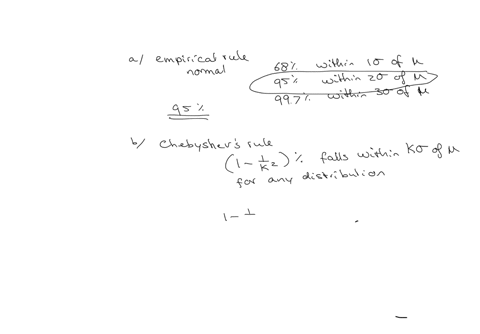 a/ empirical rule
normal
68% within 1σ of μ
95% within 2σ of μ
99.7% within 3σ of μ
95%
b/ Chebyshev's rule
(1 - 1/K²)% falls within Kσ of μ
for any distribution
1 - 1